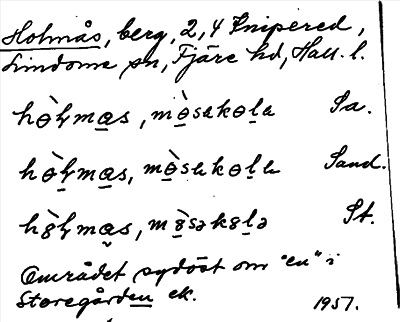 Holmås, berg, 2,4 Knipered,
Lindome sn, Fjäre hd, Hall. l.
hɵ̀ɫmas, mɵ̀sakola Sa.
hɵ̀ɫmas, mɵ̀sakola Sand.
h8̀ɫmas, m8̀sək8lə St.
Området sydöst om "en" i
Storegården ek.
1957.